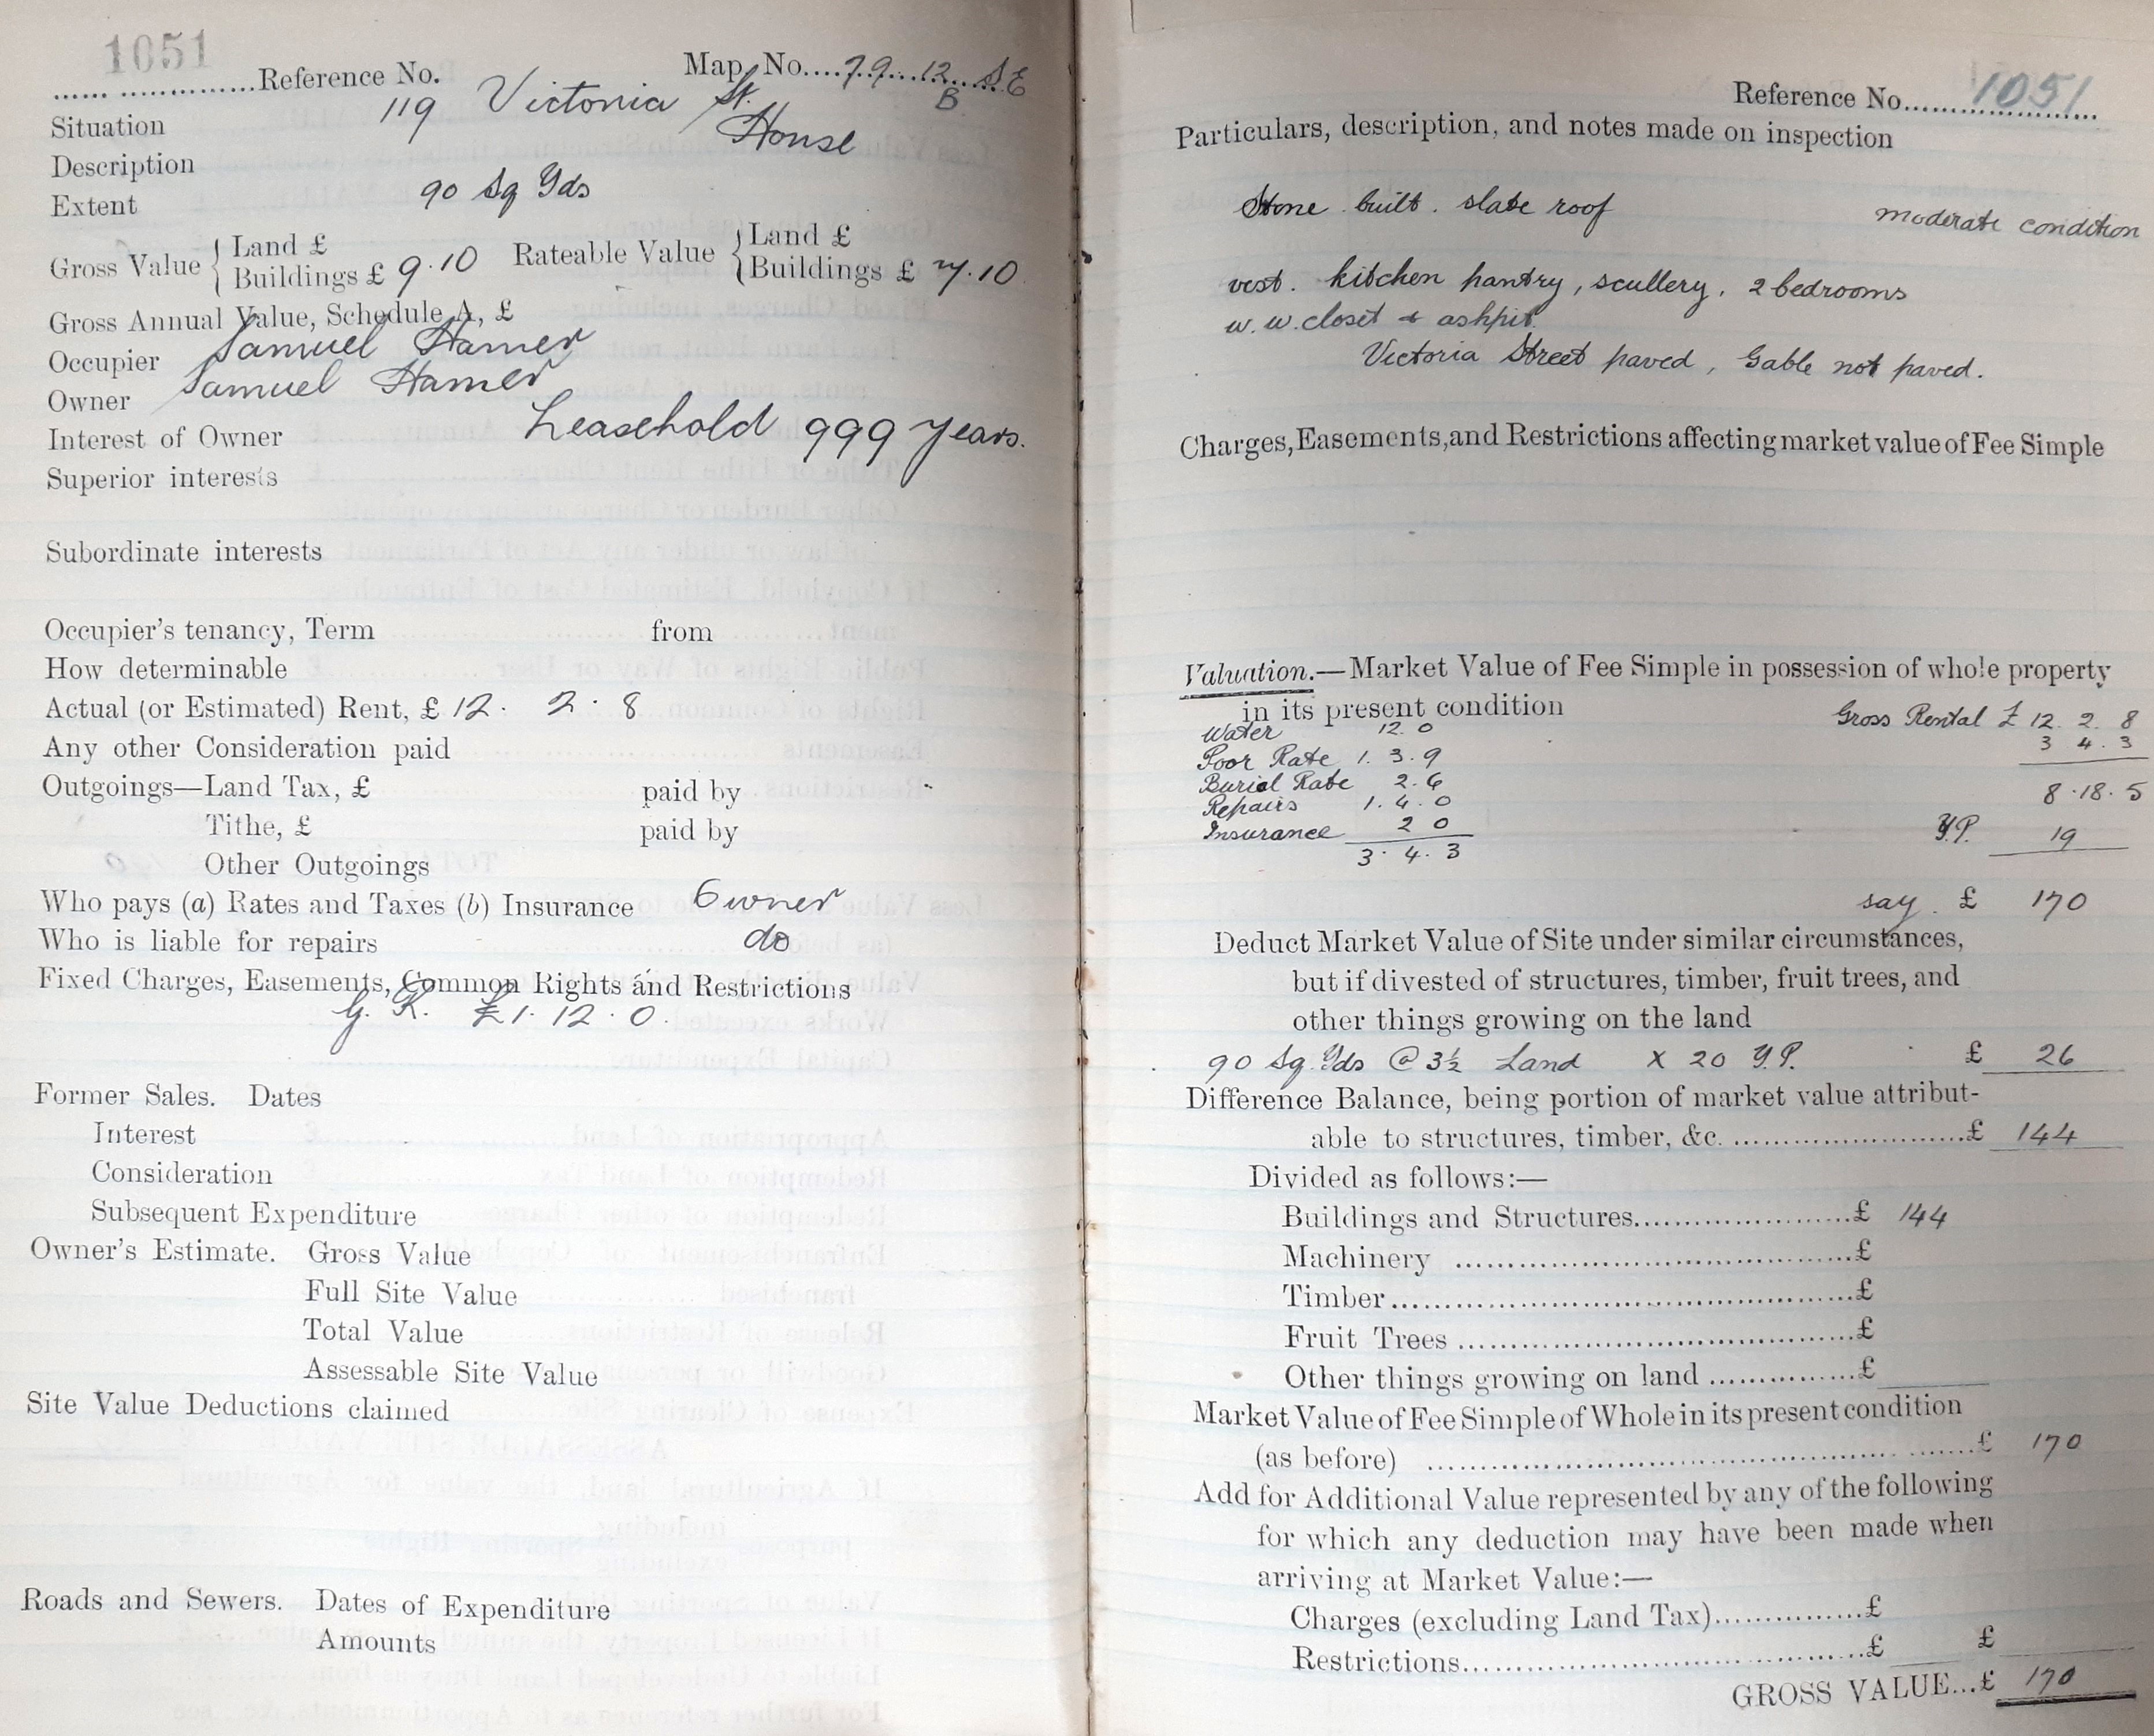 1051
Reference No. Map No. 79. 12. S E
B
Situation 119 Victoria St.
Description House
Extent 90 Sq Yds
Gross Value { Land £ Rateable Value { Land £
Buildings £ 9.10 Buildings £ 7.10
Gross Annual Value, Schedule A, £
Occupier Samuel Hamer
Owner Samuel Hamer
Interest of Owner Leasehold 999 years.
Superior interests
Subordinate interests
Occupier's tenancy, Term from
How determinable
Actual (or Estimated) Rent, £ 12. 2. 8
Any other Consideration paid
Outgoings—Land Tax, £ paid by
Tithe, £ paid by
Other Outgoings
Who pays (a) Rates and Taxes (b) Insurance Owner
Who is liable for repairs do
Fixed Charges, Easements, Common Rights and Restrictions
G. R. £1. 12. 0.
Former Sales. Dates
Interest
Consideration
Subsequent Expenditure
Owner's Estimate. Gross Value
Full Site Value
Total Value
Assessable Site Value
Site Value Deductions claimed
Roads and Sewers. Dates of Expenditure
Amounts
Reference No. 1051
Particulars, description, and notes made on inspection
Stone built. slate roof moderate condition
vest. kitchen pantry, scullery, 2 bedrooms
w. w. closet & ashpit.
Victoria Street paved, Gable not paved.
Charges, Easements, and Restrictions affecting market value of Fee Simple
Valuation.—Market Value of Fee Simple in possession of whole property
in its present condition Gross Rental £ 12. 2. 8
Water 12. 0 3 4. 3
Poor Rate 1. 3. 9
Burial Rate 2. 6 8. 18. 5
Repairs 1. 4. 0
Insurance 2 0 Y.P. 19
3. 4. 3
say £ 170
Deduct Market Value of Site under similar circumstances,
but if divested of structures, timber, fruit trees, and
other things growing on the land
90 Sq. Yds @ 3½ Land X 20 Y.P. £ 26
Difference Balance, being portion of market value attribut-
able to structures, timber, &c. £ 144
Divided as follows:—
Buildings and Structures £ 144
Machinery £
Timber £
Fruit Trees £
Other things growing on land £
Market Value of Fee Simple of Whole in its present condition
(as before) £ 170
Add for Additional Value represented by any of the following
for which any deduction may have been made when
arriving at Market Value:—
Charges (excluding Land Tax) £
Restrictions £ £
GROSS VALUE...£ 170